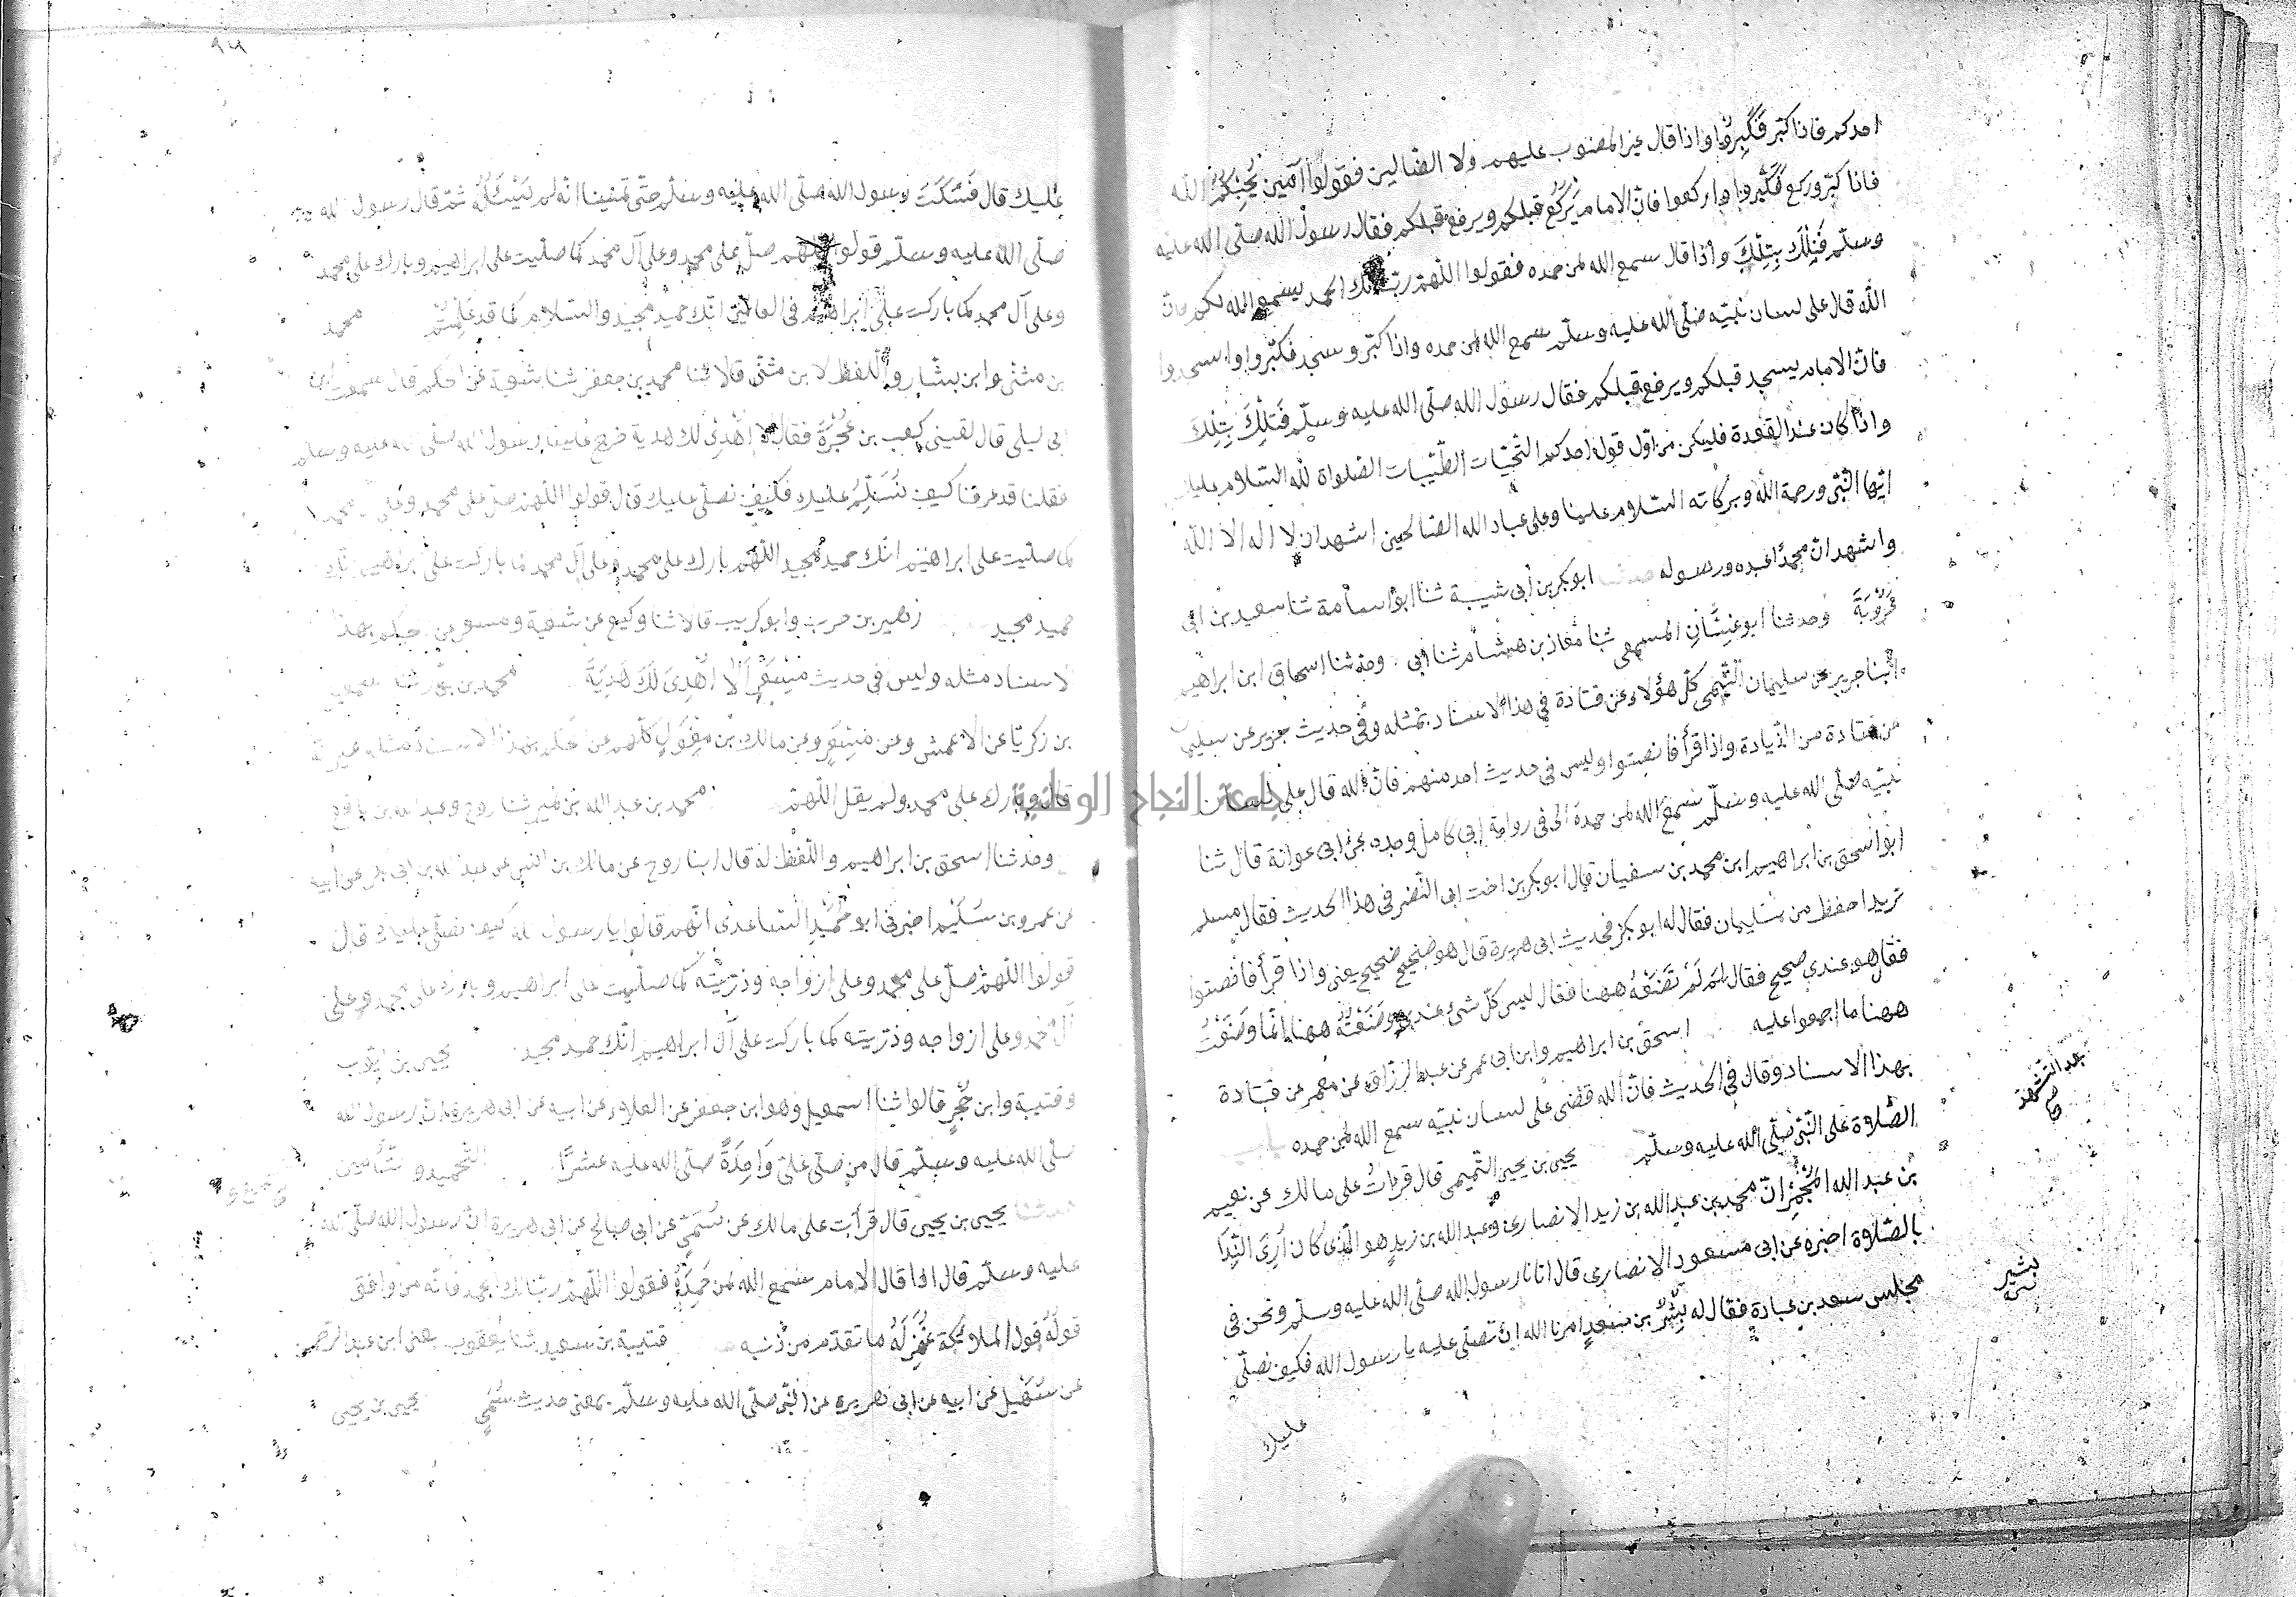 احدكم فاذا كبّر فكبّروا واذا قال غير المغضوب عليهم ولا الضالين فقولوا آمين يجبكم الله
فاذا كبّر وركع فكبّروا واركعوا فانّ الامام يركع قبلكم ويرفع قبلكم فقال رسول الله صلّى الله عليه
وسلّم فتلك بتلك واذا قال سمع الله لمن حمده فقولوا اللّهمّ ربّنا لك الحمد يسمع الله لكم فانّ
الله قال على لسان نبيّه صلّى الله عليه وسلّم سمع الله لمن حمده واذا كبّر وسجد فكبّروا واسجدوا
فانّ الامام يسجد قبلكم ويرفع قبلكم فقال رسول الله صلّى الله عليه وسلّم فتلك بتلك
واذا كان عند القعدة فليكن من اوّل قول احدكم التّحيّات الطّيّبات الصّلواة لله السّلام عليك
ايّها النّبى ورحمة الله وبركاته السّلام علينا وعلى عباد الله الصّالحين اشهد ان لا اله الا الله
واشهد انّ محمّدا عبده ورسوله حدثنا ابو بكر بن أبى شيبة ثنا ابو اسامة ثنا سعيد بن ابى
عَرُوبَةَ وحدثنا ابو غسّان المسمعى ثنا معاذ بن هشام ثنا أبى وحدثنا اسحاق ابن ابراهيم
انبنا جرير عن سليمان التّيمى كلّ هؤلاء عن قتادة فى هذا الاسناد بمثله وفى حديث جرير عن سليمن
عن قتادة من الزّيادة واذا قرأ فانصتوا وليس فى حديث احد منهم فانّ الله قال على لسان
نبيّه صلّى الله عليه وسلّم سمع الله لمن حمده الا فى رواية ابى كامل وحده عن ابى عوانة قال ثنا
ابو اسحق بن ابراهيم ابن محمد بن سفيان قال ابو بكر بن اخت ابى النّضر فى هذا الحديث فقال مسلم
تريد احفظ من سليمان فقال له ابو بكر فحديث ابى هريرة قال هو صحيح صحيح يعنى واذا قرأ فانصتوا
فقال هو عندى صحيح فقال لِمَ لَمْ تَضَعْهُ ههنا فقال ليس كلّ شئ عندى وضعته ههنا انّما وضعت
ههنا ما اجمعوا عليه اسحق بن ابراهيم وابن ابى عمر عن عبد الرّزاق عن معمر عن قتادة
بهذا الاسناد وقال فى الحديث فانّ الله قضى على لسان نبيّه سمع الله لمن حمده باب
الصّلاوة على النّبى صلّى الله عليه وسلّم يحيى بن يحيى التّميمى قال قرات على مالك عن نعيم
بعد التّشهّد
صح
بن عبد الله المُجْمِر انّ محمد بن عبد الله بن زيد الانصارى وعبد الله بن زيد هو الّذى كان أُرِىَ النّدا
بالصّلاوة اخبره عن ابى مسعود الانصارى قال اتانا رسول الله صلّى الله عليه وسلّم ونحن فى
مجلس سعد بن عبادة فقال له بشر بن سعد امرنا الله ان نصلّى عليه يا رسول الله فكيف نصلّى
بشير
عليك
٩٧
عليك قال فسكت رسول الله صلّى الله عليه وسلّم حتّى تمنينا انّه لم يسئله ثم قال رسول الله
صلّى الله عليه وسلّم قولوا اللّهم صلّ على محمد وعلى آل محمد كما صلّيت على ابراهيم وبارك على محمد
وعلى آل محمد كما باركت على ابراهيم فى العالمين انّك حميد مجيد والسّلام كما قد علمتم محمد
بن مثنّى وابن بشار واللّفظ لابن مثنّى قالا ثنا محمد بن جعفر ثنا شعبة عن الحكم قال سمعت ابن
ابى ليلى قال لقينى كعب بن عُجْرَةَ فقال الا اهدى لك هدية خرج علينا رسول الله صلّى الله عليه وسلم
فقلنا قد عرفنا كيف نسلّم عليك فكيف نصلّى عليك قال قولوا اللّهم صلّ على محمد وعلى آل محمد
كما صلّيت على ابراهيم انّك حميد مجيد اللّهم بارك على محمد وعلى آل محمد كما باركت على ابراهيم انّك
حميد مجيد زهير بن حرب وابو كريب قالا ثنا وكيع عن شعبة ومسعر عن الحكم بهذا
الاسناد مثله وليس فى حديث مِسْعَرٍ اَلَا اُهْدِىَ لَكَ هَدِيَّةً محمد بن بكّار ثنا اسمعيل
بن زكريّا عن الاعمش وعن مسعر وعن مالك بن مِغْوَلٍ كلّهم عن الحكم بهذا الاسناد مثله غير انّه
قال وبارك على محمد ولم يقل اللّهم محمد بن عبد الله بن نمير ثنا روح وعبد الله بن نافع
وحدثنا اسحق بن ابراهيم واللّفظ له قال ابنا روح عن مالك بن انس عن عبد الله بن ابى بكر عن ابيه
عن عمرو بن سُلَيْم اخبرنى ابو حُمَيْدٍ السّاعدى انّهم قالوا يا رسول الله كيف نصلّى عليك قال
قولوا اللّهمّ صلّ على محمد وعلى ازواجه وذرّيّته كما صلّيت على ابراهيم وبارك على محمد وعلى
آل محمد وعلى ازواجه وذرّيّته كما باركت على آل ابراهيم انّك حميد مجيد يحيى بن ايّوب
وقتيبة وابن حُجْرٍ قالوا ثنا اسمعيل وهو ابن جعفر عن العلاء عن ابيه عن ابى هريرة انّ رسول الله
صلّى الله عليه وسلّم قال من صلّى علىّ وَاحِدَةً صلّى الله عليه عشرًا التّحميد والتّأمين
حدثنا يحيى بن يحيى قال قرأت على مالك عن سُمَىٍّ عن ابى صالح عن ابى هريرة انّ رسول الله صلّى الله
عليه وسلّم قال اذا قال الامام سمع الله لمن حمده فقولوا اللّهمّ ربّنا لك الحمد فانّه من وافق
قوله قول الملائكة غُفِرَ لَهُ ما تقدّم من ذنبه قتيبة بن سعيد ثنا يعقوب يعنى ابن عبد الرّحمن
عن سُهَيْل عن ابيه عن ابى هريرة عن النّبى صلّى الله عليه وسلّم بمعنى حديث سُمَىّ يحيى بن يحيى
جامعة النجاح الوطنية